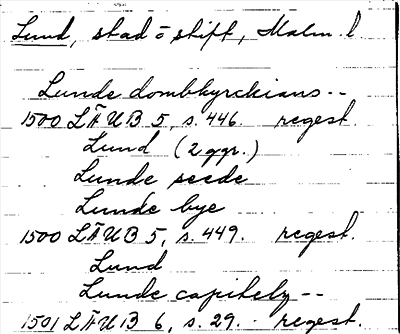 Lund, stad o stift, Malm. l
Lunde dombkyrckians --
1500 LÄUB 5, s. 446. regest.
Lund (2 ggr.)
Lunde seede
Lunde bye
1500 LÄUB 5, s. 449. regest.
Lund
Lunde capitely --
1501 LÄUB 6, s. 29. - regest.